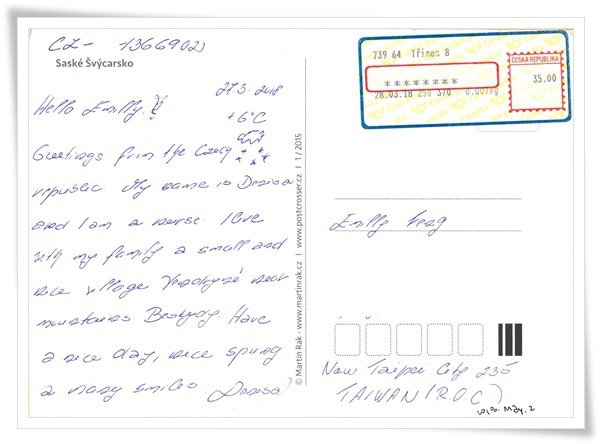 CZ- 1366902
Saské Švýcarsko
27.3. 2018
Hello Emilly !
+6°C
Greetings from the Czech
republic My name is Denisa
and I am a nurse. I live
with my family a small and
nice village near
mountains Beskydy Have
a nice day, nice spring
a many smiles Denisa
© Martin Rak - www.martinrak.cz | www.postcrosser.cz | 1 / 2015
739 64 Třinec 8
ČESKÁ REPUBLIKA
35.00
********
28.03.18 250 370 0.007kg
Emilly
New Taipei City 235
TAIWAN (R.O.C)
2018. May. 2